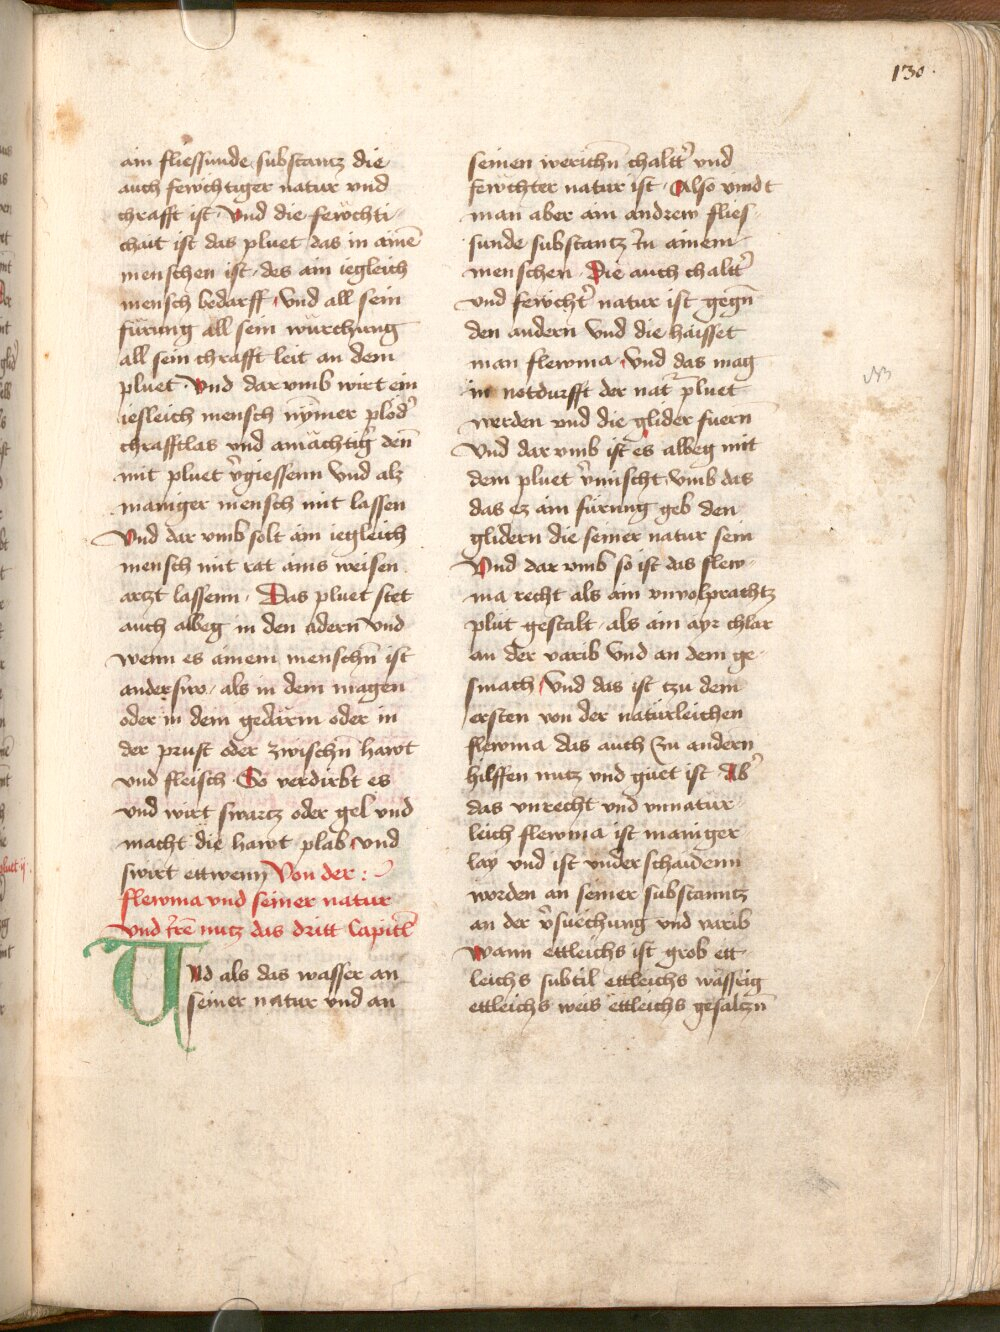 130
ain fliessunde substantz die
auch fewchtiger natur vnd
chrafft ist · Vnd die fewchti
chait ist das pluet das in ainē
menschen ist · des ain iegleich
mensch bedarff · Vnd all sein
fürung all sein würchung
all sein chrafft leit an dem
pluet · Vnd dar vmb wirt ein
iesleich mensch nÿmer plöd᾽
chrafftlas vnd amächtig᾽ den̄
mit pluet v᾽giessenn Vnd alz
maniger mensch mit lassen
Vnd dar vmb solt ain iegleich
mensch mit rat ains weisen
artzt lassenn · Das pluet stet
auch albeg in den adern Vnd
wenn es ainem menschn̄ ist
anderswo · als in dem magen
oder in dem gedärm oder in
der prust oder zwischn̄ hawt
vnd fleisch · So verdirbt es
vnd wirt swartz oder gel vnd
macht die hawt plab · vnd
swirt ettwenn Von der :
flewma vnd seiner natur
Vnd irē nutz das dritt Capitl̄
Und als das wasser an
seiner natur vnd an
seinen werichn̄ chaltt᾽ vnd
fewchter natur ist · Also vindt
man aber ain andrew flies
sunde substantz In ainem
menschen · Die auch chaltt᾽
vnd fewcht᾽ natur ist gegn̄
den andern Vnd die haisset
man flewma · Vnd das mag
in notdurfft der nat᾽ pluet
werden vnd die glider fuern
Vnd dar vmb ist es albeg mit
dem pluet v᾽mischt vmb das
das ez ain fürung geb den
glidern die seiner natur sein
Vnd dar vmb so ist das flew
ma recht als ain vnvolprachtz
plüt gestalt · als ain ayr chlar
an der varib Vnd an dem ge
smach · Vnd das ist tzu dem
ersten von der natürleichen
flewma das auch Czu andern
hilffen nutz vnd güet ist Ab᾽
das vnrecht vnd vnnatür
leich flewma ist maniger
lay vnd ist vnderschaidenn
worden an seiner substanntz
an der v᾽süechung vnd varib
Wann ettleichs ist grob ett
leichs subtil ettleichs wässrig
ettleichs weis ettleichs gesaltzn̄